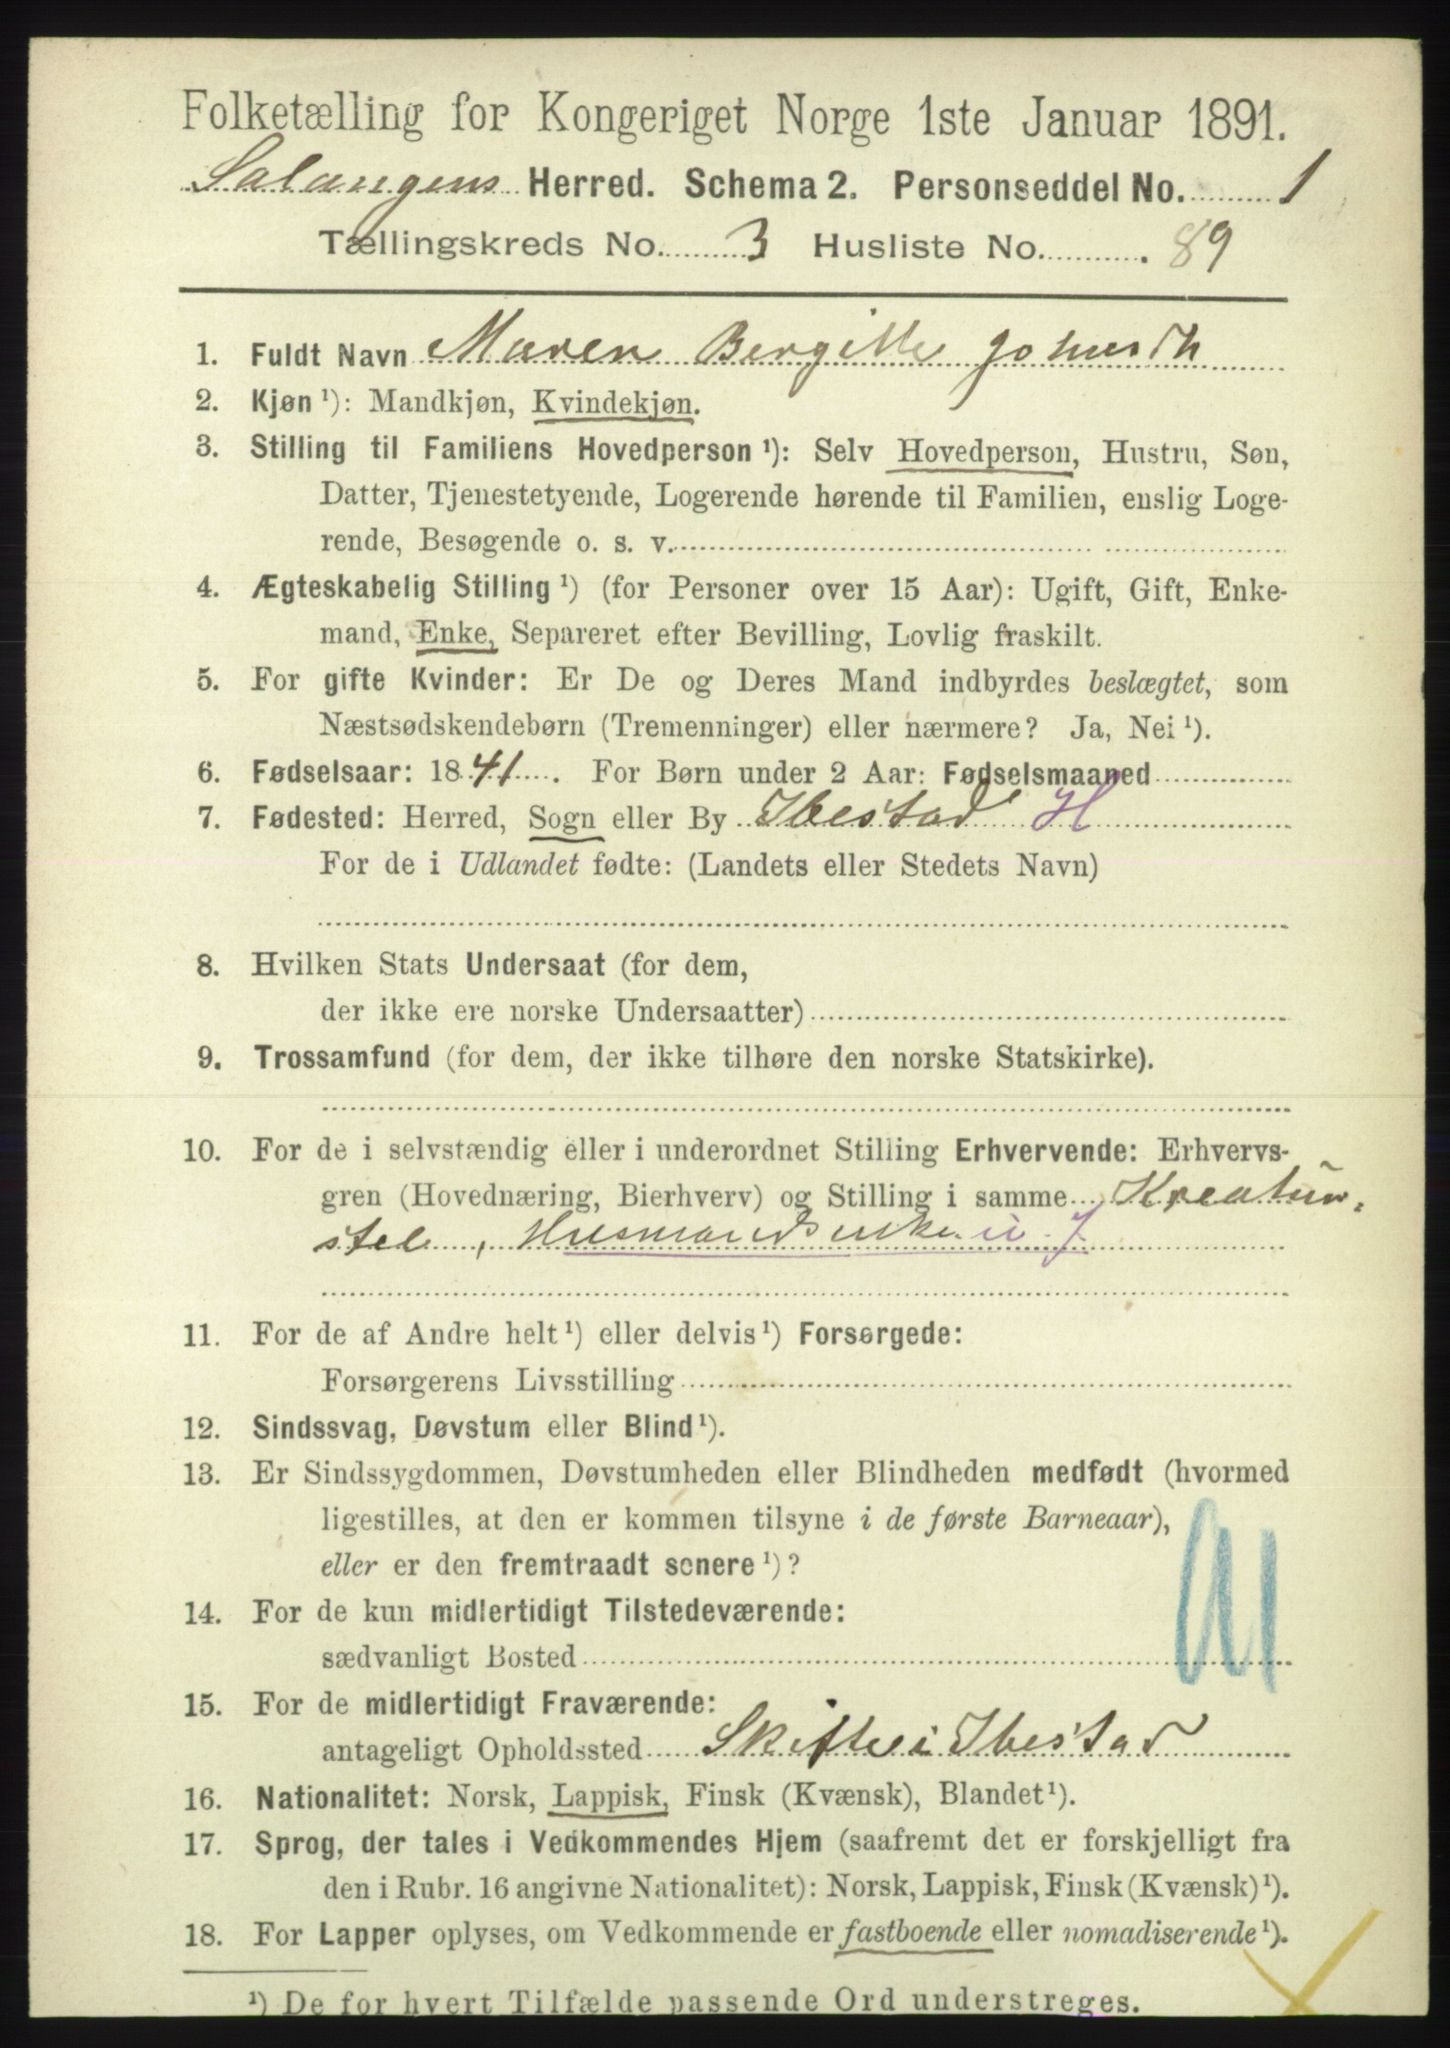 Folketælling for Kongeriget Norge 1ste Januar 1891.
Salangens Herred. Schema 2. Personseddel No. 1
Tællingskreds No. 3 Husliste No. 89
1. Fuldt Navn Maren Bergitte Johnsdh
2. Kjøn ¹): Mandkjøn, Kvindekjøn.
3. Stilling til Familiens Hovedperson ¹): Selv Hovedperson, Hustru, Søn,
Datter, Tjenestetyende, Logerende hørende til Familien, enslig Loge-
rende, Besøgende o. s. v.
4. Ægteskabelig Stilling ¹) (for Personer over 15 Aar): Ugift, Gift, Enke-
mand, Enke, Separeret efter Bevilling, Lovlig fraskilt.
5. For gifte Kvinder: Er De og Deres Mand indbyrdes beslægtet, som
Næstsødskendebørn (Tremenninger) eller nærmere? Ja, Nei ¹).
6. Fødselsaar: 1841. For Børn under 2 Aar: Fødselsmaaned
7. Fødested: Herred, Sogn eller By Ibestad H
For de i Udlandet fødte: (Landets eller Stedets Navn)
8. Hvilken Stats Undersaat (for dem,
der ikke ere norske Undersaatter)
9. Trossamfund (for dem, der ikke tilhøre den norske Statskirke).
10. For de i selvstændig eller i underordnet Stilling Erhvervende: Erhvervs-
gren (Hovednæring, Bierhverv) og Stilling i samme Kreatur-
stel, Husmandsenke u. J
11. For de af Andre helt ¹) eller delvis ¹) Forsørgede:
Forsørgerens Livsstilling
12. Sindssvag, Døvstum eller Blind ¹).
13. Er Sindssygdommen, Døvstumheden eller Blindheden medfødt (hvormed
ligestilles, at den er kommen tilsyne i de første Barneaar),
eller er den fremtraadt senere ¹)?
14. For de kun midlertidigt Tilstedeværende:
sædvanligt Bosted
15. For de midlertidigt Fraværende:
antageligt Opholdssted i Ibestad
16. Nationalitet: Norsk, Lappisk, Finsk (Kvænsk), Blandet ¹).
17. Sprog, der tales i Vedkommendes Hjem (saafremt det er forskjelligt fra
den i Rubr. 16 angivne Nationalitet): Norsk, Lappisk, Finsk (Kvænsk) ¹).
18. For Lapper oplyses, om Vedkommende er fastboende eller nomadiserende ¹).
¹) De for hvert Tilfælde passende Ord understreges.